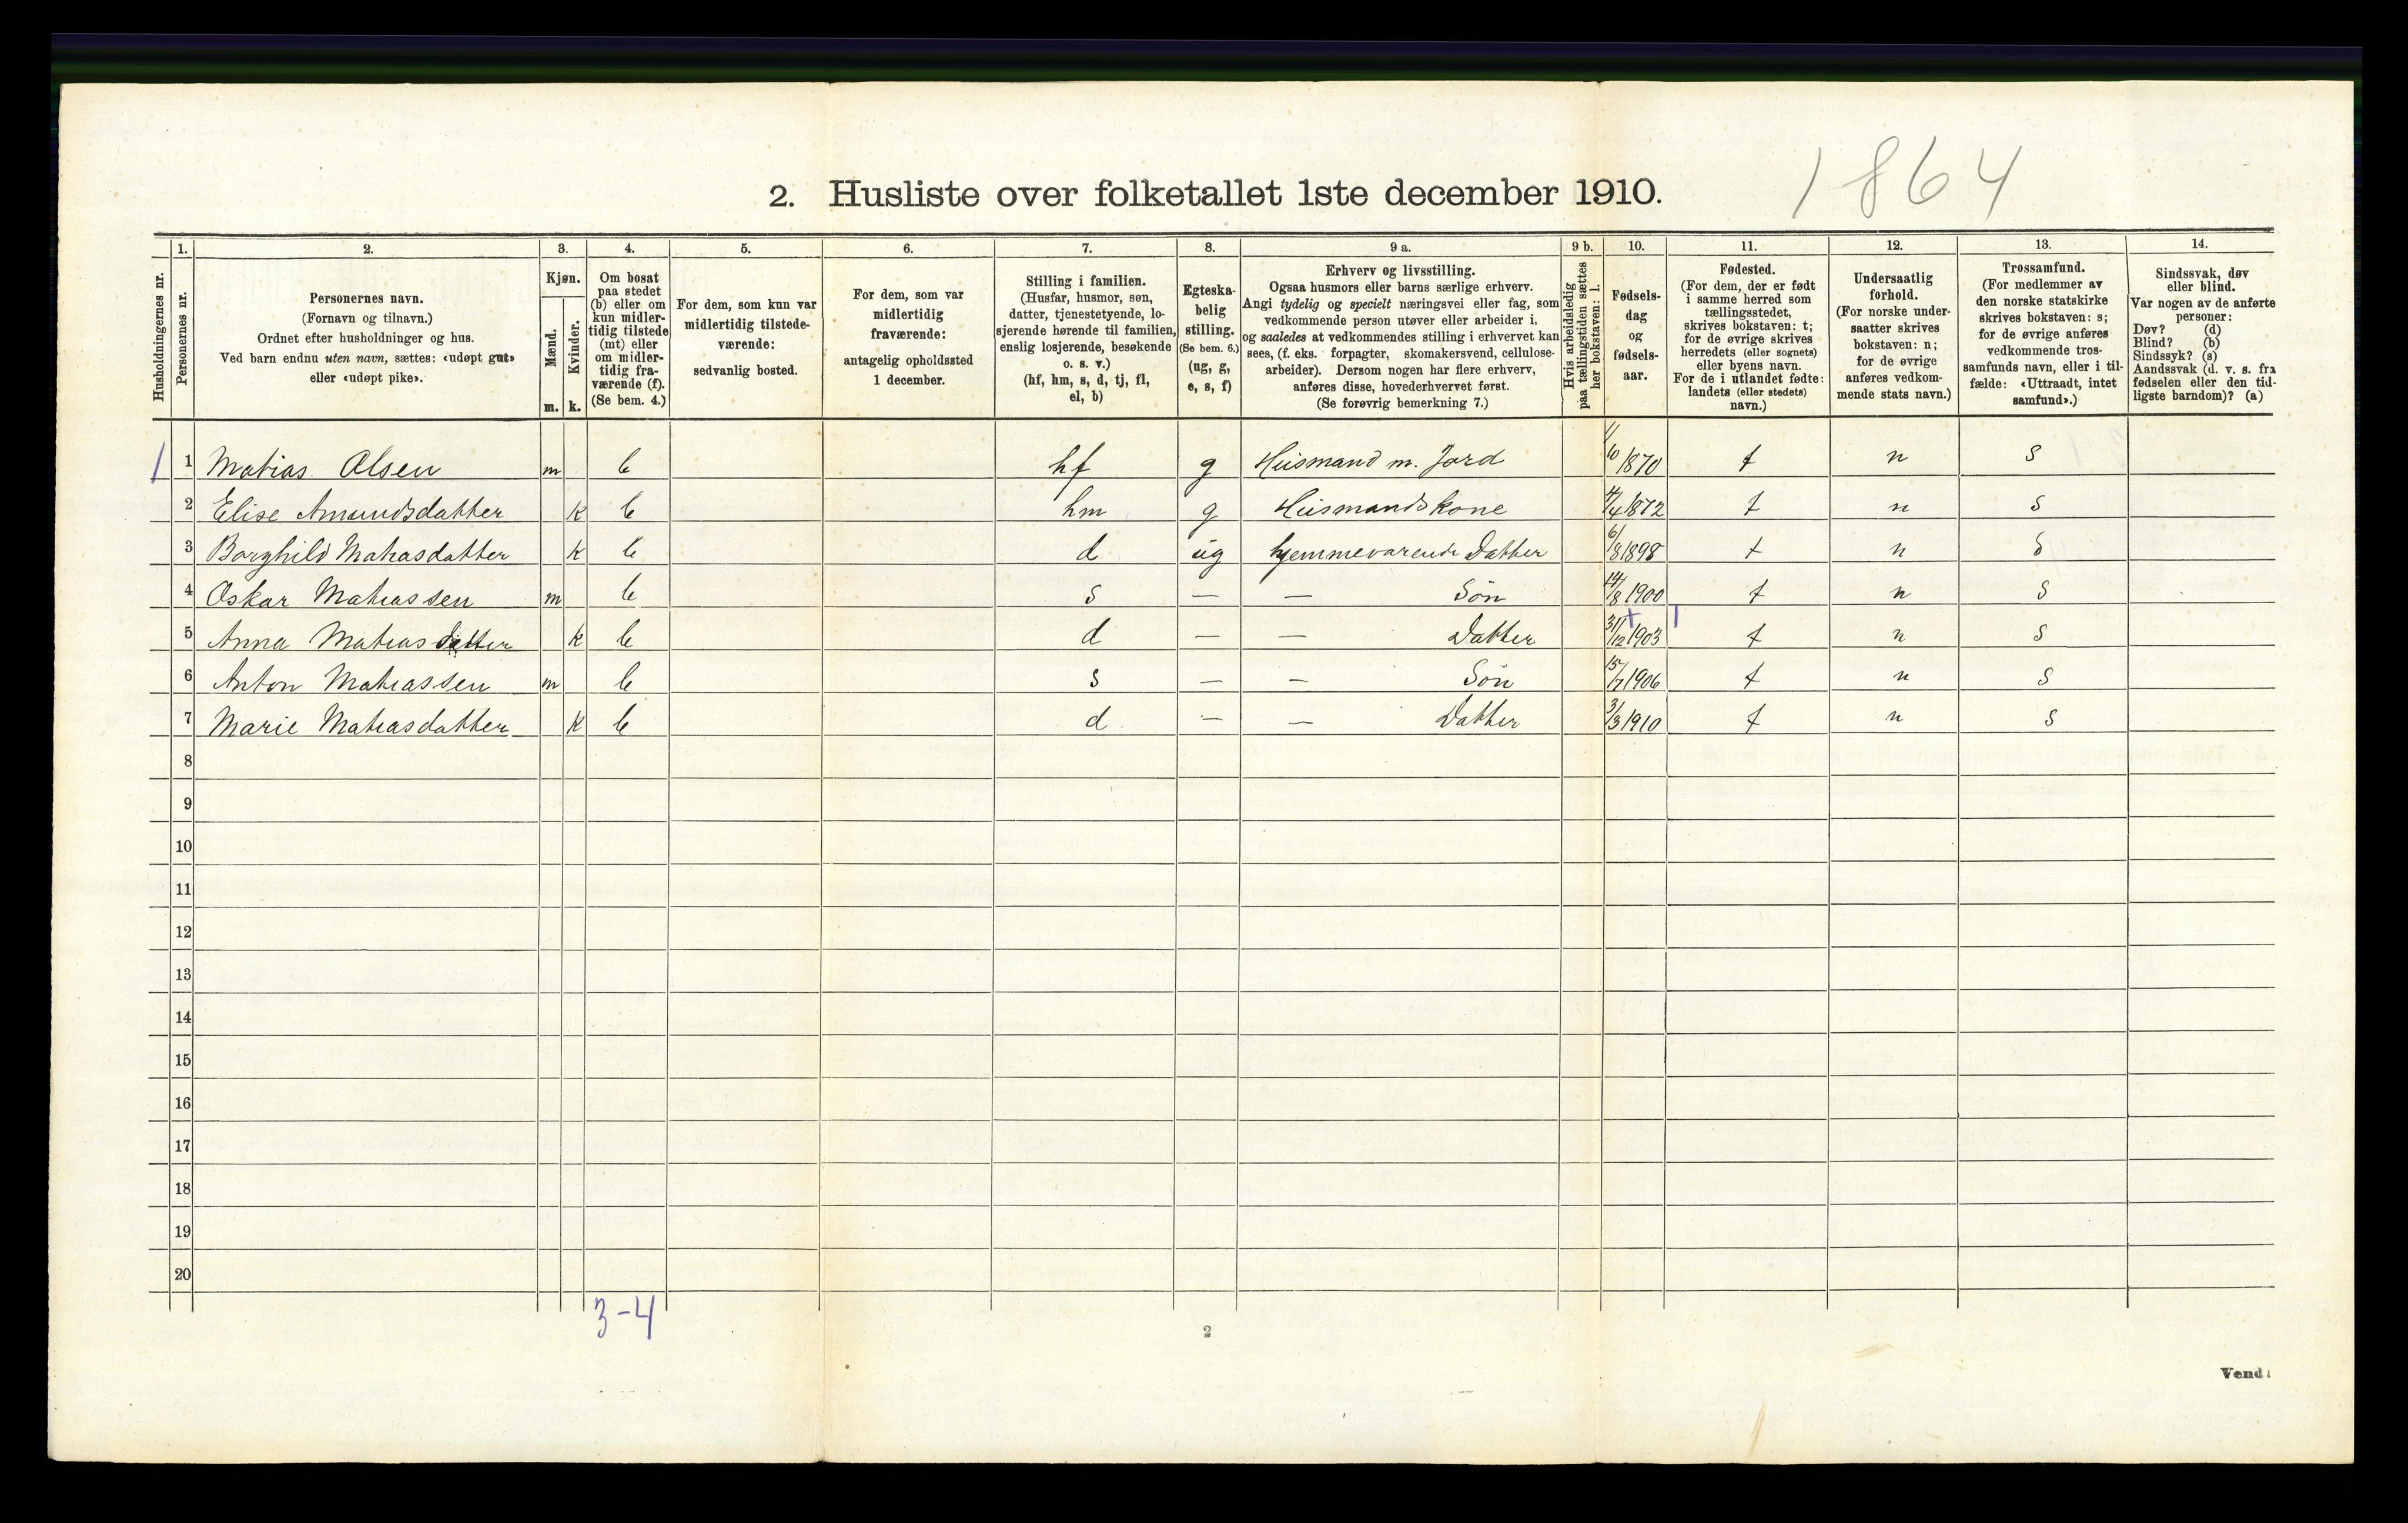 1864
2. Husliste over folketallet 1ste december 1910.
Husholdningernes nr.
1.
Personernes nr.
2.
Personernes navn.
(Fornavn og tilnavn.)
Ordnet efter husholdninger og hus.
Ved barn endnu uten navn, sættes: «udøpt gut»
eller «udøpt pike».
3.
Kjøn.
Mænd.
Kvinder.
m. k.
4.
Om bosat
paa stedet
(b) eller om
kun midler-
tidig tilstede
(mt) eller
om midler-
tidig fra-
værende (f).
(Se bem. 4.)
5.
For dem, som kun var
midlertidig tilstede-
værende:
sedvanlig bosted.
6.
For dem, som var
midlertidig
fraværende:
antagelig opholdssted
1 december.
7.
Stilling i familien.
(Husfar, husmor, søn,
datter, tjenestetyende, lo-
sjerende hørende til familien,
enslig losjerende, besøkende
o. s. v.)
(hf, hm, s, d, tj, fl,
el, b)
8.
Egteska-
belig
stilling.
(Se bem. 6.)
(ug, g,
e, s, f)
9 a.
Erhverv og livsstilling.
Ogsaa husmors eller barns særlige erhverv.
Angi tydelig og specielt næringsvei eller fag, som
vedkommende person utøver eller arbeider i,
og saaledes at vedkommendes stilling i erhvervet kan
sees, (f. eks. forpagter, skomakersvend, cellulose-
arbeider). Dersom nogen har flere erhverv,
anføres disse, hovederhvervet først.
(Se forøvrig bemerkning 7.)
9 b.
Hvis arbeidsledig
paa tællingstiden sættes
her bokstaven: l.
10.
Fødsels-
dag
og
fødsels-
aar.
11.
Fødested.
(For dem, der er født
i samme herred som
tællingsstedet,
skrives bokstaven: t;
for de øvrige skrives
herredets (eller sognets)
eller byens navn.
For de i utlandet fødte:
landets (eller stedets)
navn.)
12.
Undersaatlig
forhold.
(For norske under-
saatter skrives
bokstaven: n;
for de øvrige
anføres vedkom-
mende stats navn.)
13.
Trossamfund.
(For medlemmer av
den norske statskirke
skrives bokstaven: s;
for de øvrige anføres
vedkommende tros-
samfunds navn, eller i til-
fælde: «Uttraadt, intet
samfund».)
14.
Sindssvak, døv
eller blind.
Var nogen av de anførte
personer:
Døv? (d)
Blind? (b)
Sindssyk? (s)
Aandssvak (d. v. s. fra
fødselen eller den tid-
ligste barndom)? (a)
1 1 Matias Olsen m b hf g Husmand m. Jord 1/10 1870 t n s
2 Elise Amundsdatter k b hm g Husmandskone 4/4 1872 t n s
3 Borghild Matiasdatter k b d ug hjemmevarende Datter 6/8 1898 t n s
4 Oskar Matiassen m b s — — Søn 14/8 1900 t n s
5 Anna Matiasdatter k b d — — Datter 31/12 1903 t n s
6 Anton Matiassen m b s — — Søn 15/7 1906 t n s
7 Marie Matiasdatter k b d — — Datter 3/3 1910 t n s
8
9
10
11
12
13
14
15
16
17
18
19
20
3-4
2
Vend!